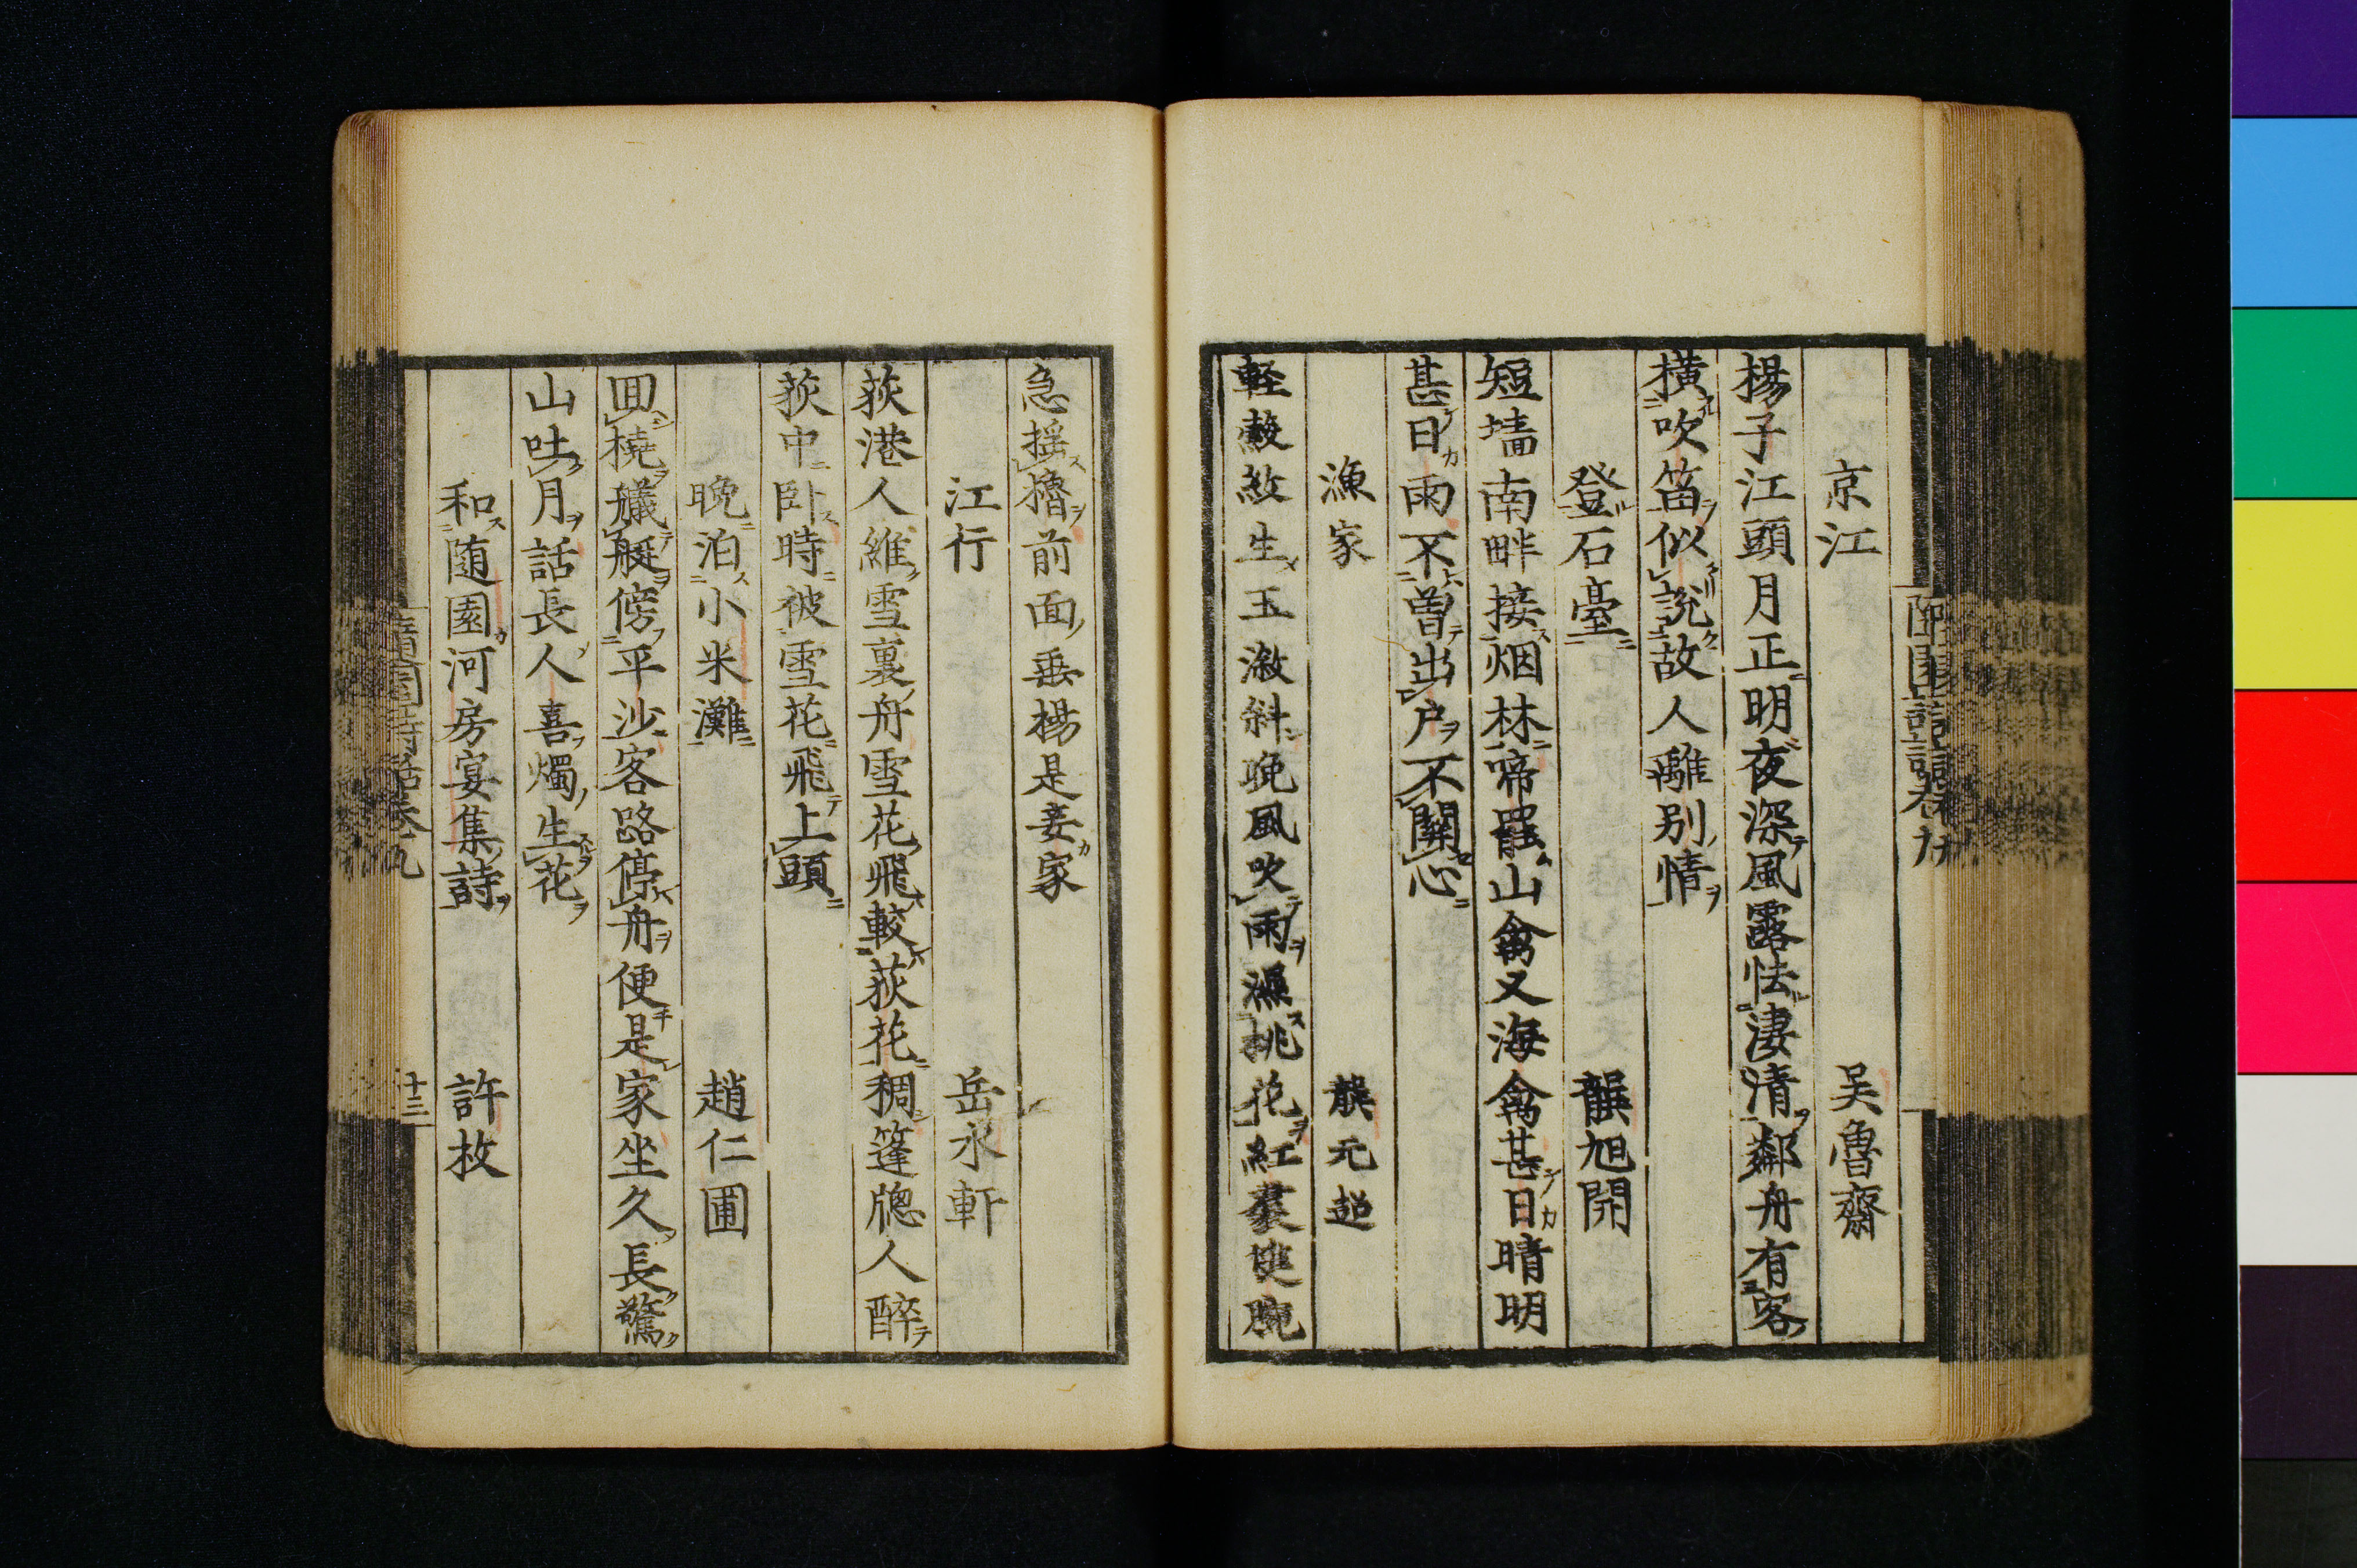 京江 吴魯齋
楊子江頭月正明夜深風露怯淒清鄰舟有客
横吹笛似說故人離別情
登石臺 龔旭開
短墻南畔接烟林啼罷山禽又海禽甚日晴明
甚日雨不曽出户不關心
漁家 龔元超
軽縠紋生玉漵斜晚風吹雨濕桃花紅裳雙腕
急揺櫓前面垂楊是妾家
江行 岳水軒
荻港人維雪裏舟雪花飛較荻花稠篷牕人醉
荻中卧時被雪花飛上頭
晩泊小米灘 趙仁圃
囬橈艤艇傍平沙客路停舟便是家坐久長驚
山吐月話長人喜燭生花
和随園河房宴集詩 許枚
十三